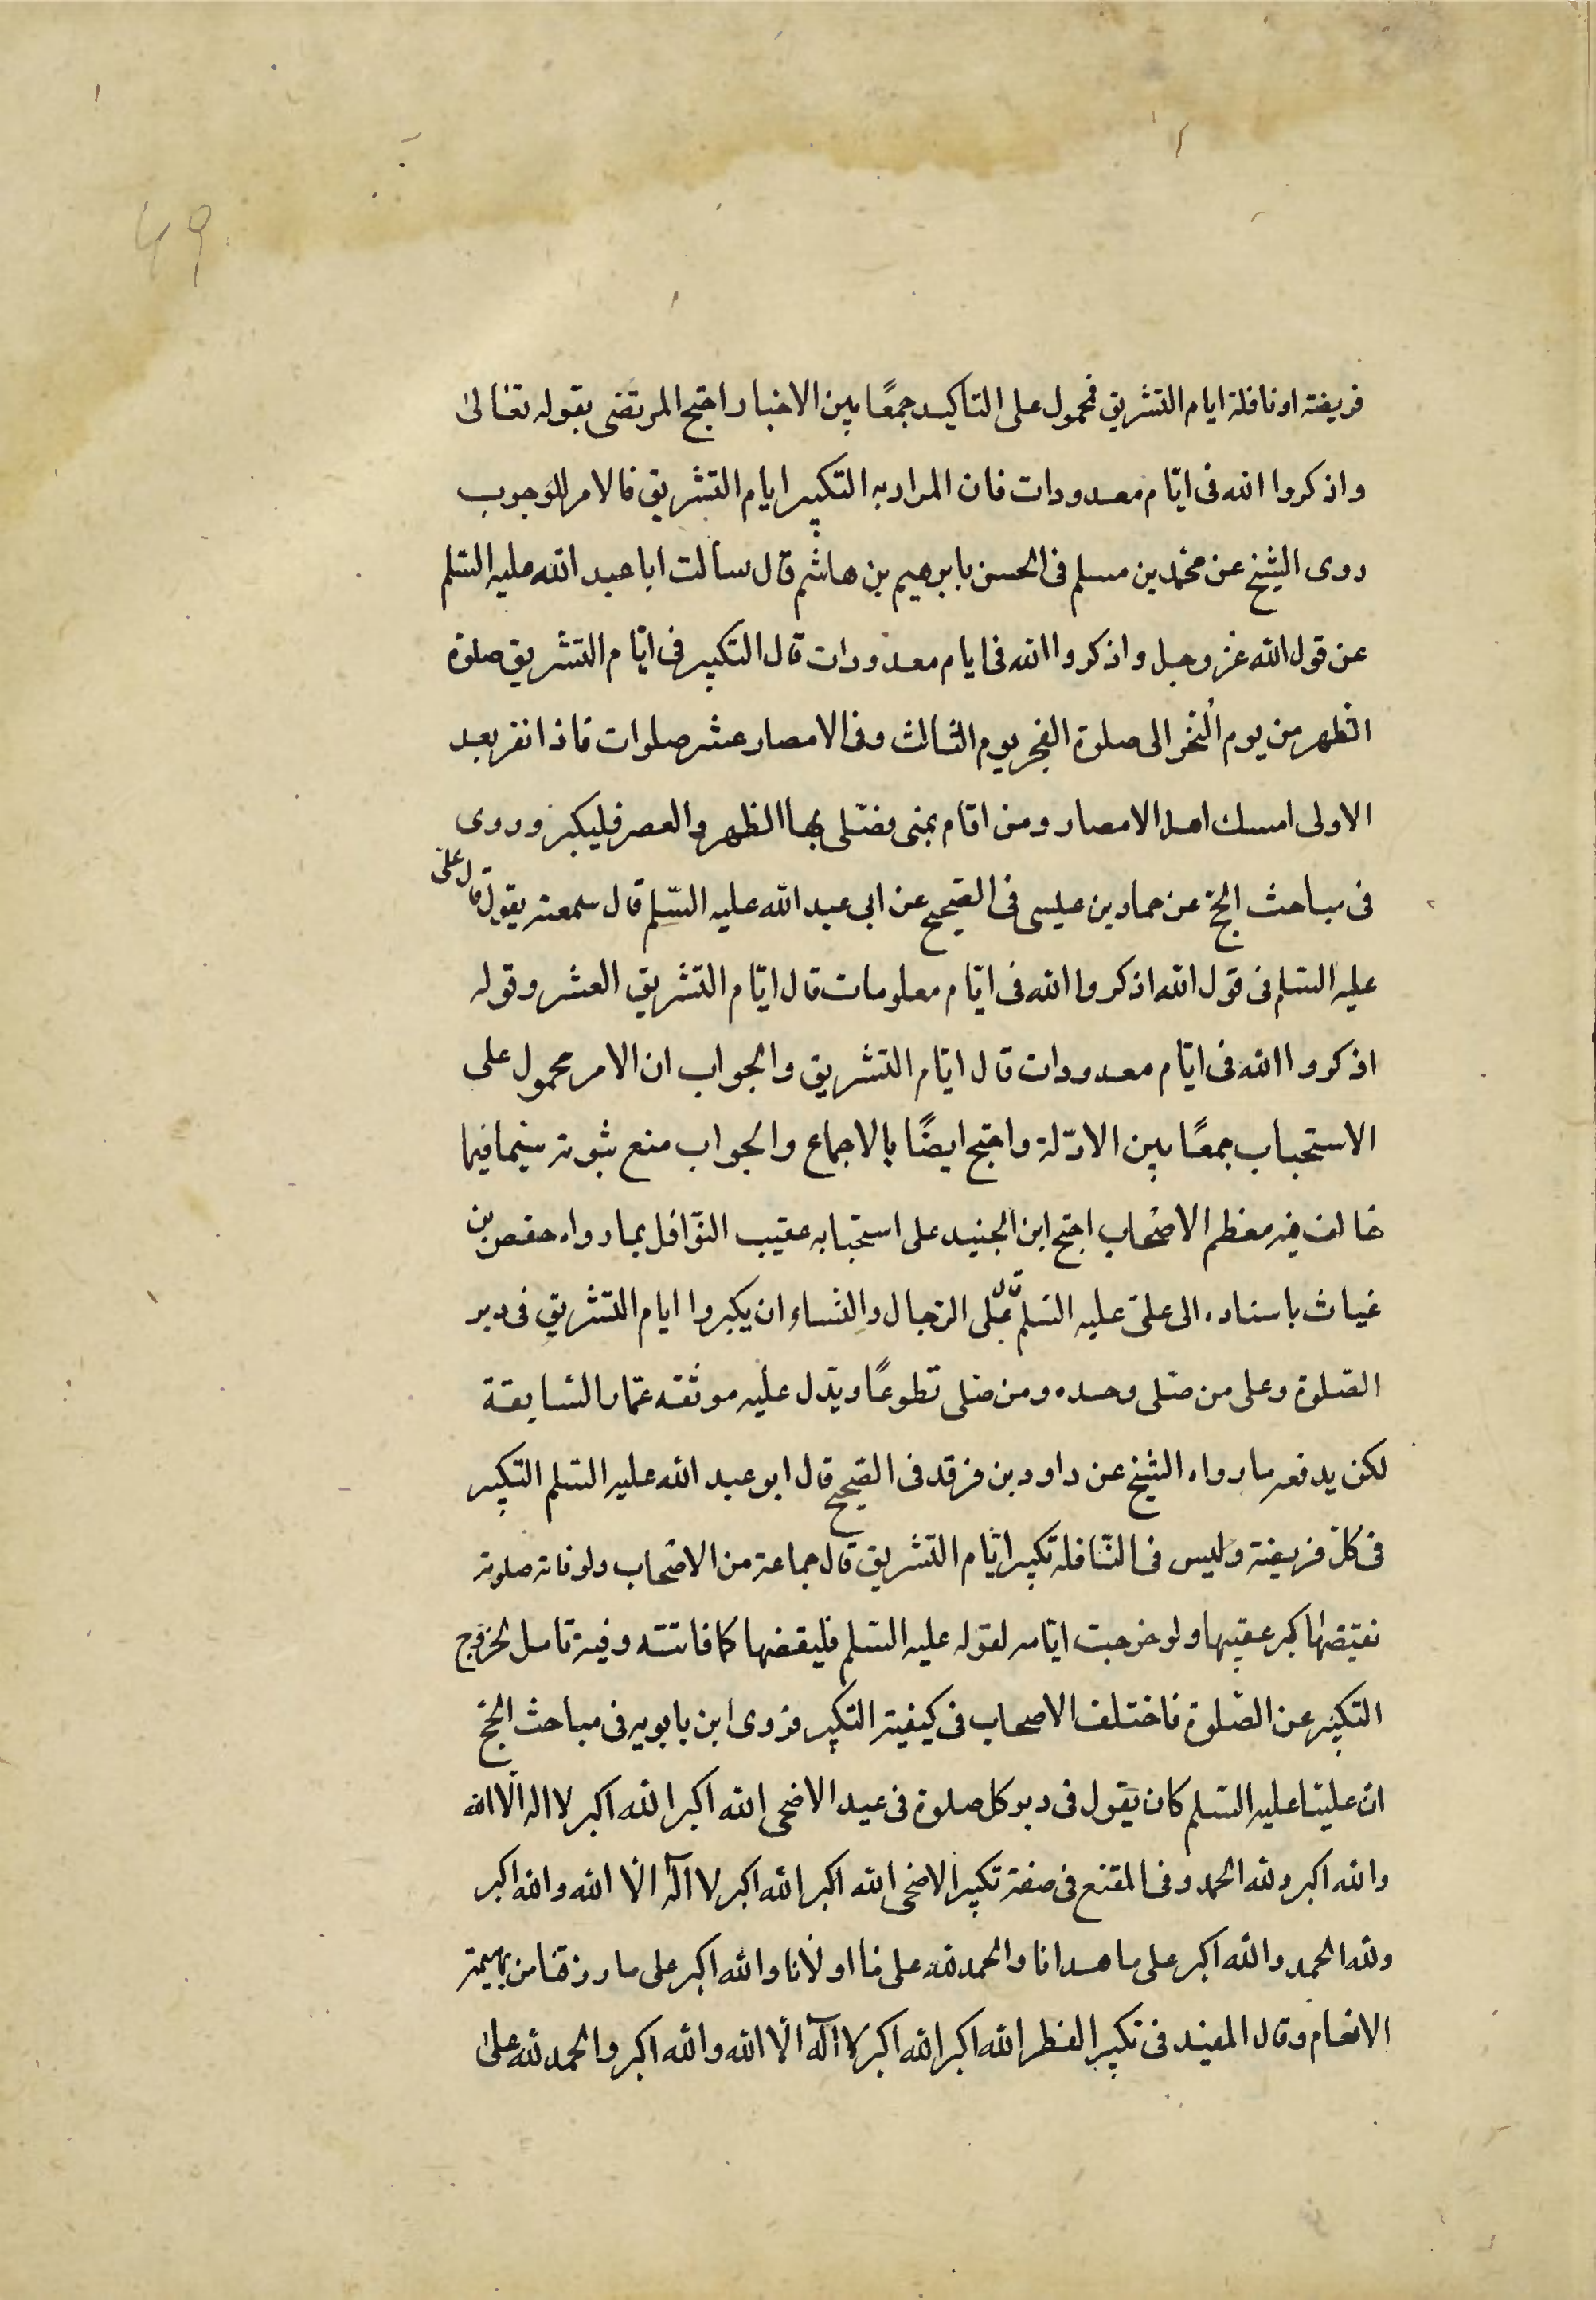 49
فريضة او نافلة ايام التشريق فمحمول على التاكيد جمعًا بين الاخبار احتج المرتضى بقوله تعالى
واذكروا الله فى ايّام معدودات فان المراد به التكبير ايام التشريق فالامر للوجوب
روى الشيخ عن محمّد بن مسلم فى الحسن بابرهيم بن هاشم قال سالت ابا عبد الله عليه السّلم
عن قول الله عز وجل واذكروا الله فى ايام معدودات قال التكبير فى ايّام التشريق صلوة
الظهر من يوم النحر الى صلوة الفجر يوم الثالث وفى الامصار عشر صلوات فاذا نفر بعد
الاولى امسك اهل الامصار ومن اقام بمنى فصلى بها الظهر والعصر فليكبر وروى
فى مباحث الحج عن حماد بن عيسى فى الصحيح عن ابى عبد الله عليه السّلم قال سمعته يقول قال على
عليه السّلم فى قول الله اذكروا الله فى ايّام معلومات قال ايّام التشريق العشر وقوله
اذكروا الله فى ايّام معدودات قال ايّام التشريق والجواب ان الامر محمول على
الاستحباب جمعًا بين الادّلة واحتج ايضًا بالاجماع والجواب منع ثبوته سيما فيما
خالف فيه معظم الاصحاب احتج ابن الجنيد على استحبابه عقيب النّوافل بما رواه حفص بن
غياث باسناده الى علىّ عليه السّلم قال على الرّجال والنّساء ان يكبروا ايام التشريق فى دبر
الصّلوة وعلى من صلّى وحده ومن صلى تطوعًا ويدّل عليه موثقه عمّار السّابقة
لكن يدفعه ما رواه الشيخ عن داود بن فرقد فى الصحيح قال ابو عبد الله عليه السّلم التكبير
فى كلّ فريضة وليس فى النّافلة تكبير ايّام التشريق قال جماعة من الاصحاب ولو فاته صلوة
فقضها كبر عقيبها ولو خرجت ايّامه لقوله عليه السّلم فليقضها كما فاتته وفيه تامل لخروج
التكبير عن الصّلوة فاختلف الاصحاب فى كيفية التكبير فروى ابن بابويه فى مباحث الحجّ
ان عليّا عليه السّلم كان يقول فى دبر كل صلوة فى عيد الاضحى الله اكبر الله اكبر لا اله الّا الله
والله اكبر ولله الحمد وفى المقنع فى صفة تكبير الاضحى الله اكبر الله اكبر لا اله الّا الله والله اكبر
ولله الحمد والله اكبر على ما هدانا والحمد لله على ما اولانا والله اكبر على ما رزقنا من بهيمة
الانعام وقال المفيد فى تكبير الفطر الله اكبر الله اكبر لا اله الّا الله والله اكبر والحمد لله على